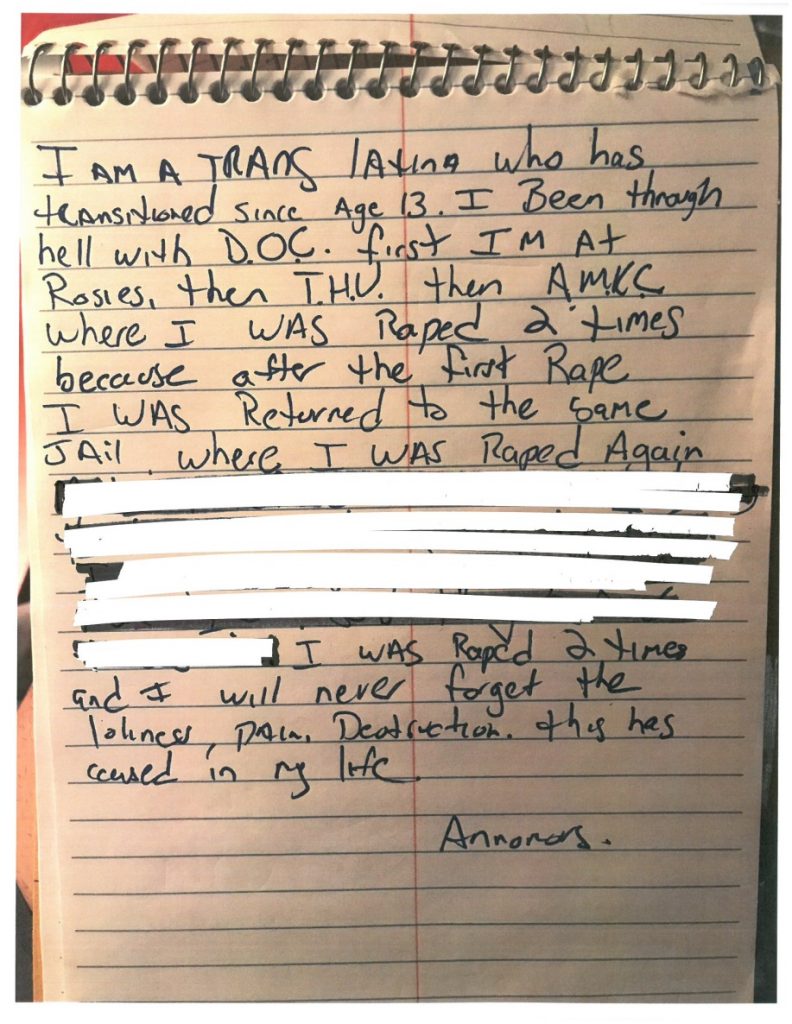 I AM A TRANS lAtinA who has
tRANsitioned since Age 13. I Been through
hell with D.O.C. first I'M At
Rosies, then T.H.U. then A.M.K.C.
where I WAS Raped 2 times
because after the first Rape
I WAS Returned to the same
JAil where I WAS Raped Again
I WAS Raped 2 times
and I will never forget the
loliness, pAin, Destruction. this has
caused in my life.
Annomors.